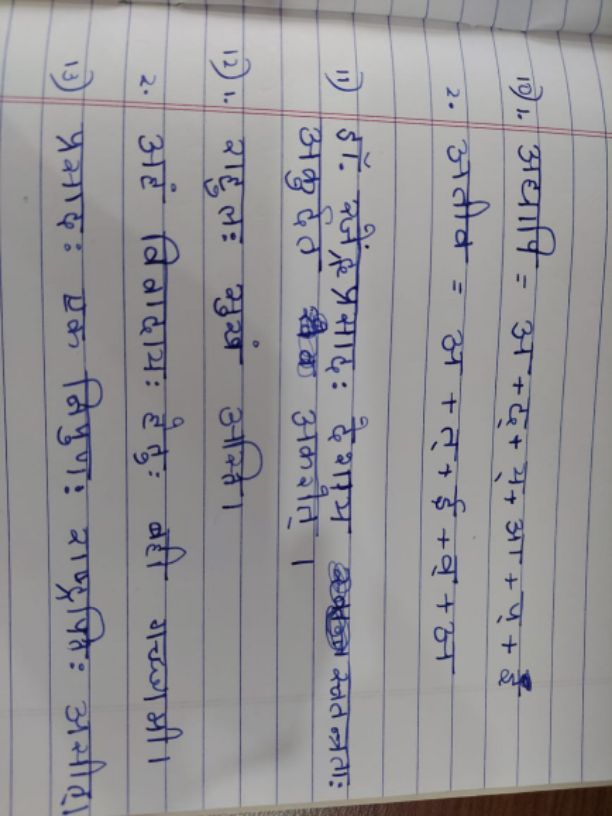 10) 1. अद्यापि = अ + द् + य् + आ + प् + इ
2. अतीव = अ + त् + ई + व् + अ
11) डॉ. राजेंद्रप्रसादः देशाय स्वतन्त्रताः
अकुर्वत अकरोत् ।
12) 1. राहुलः मुखं अस्ति।
2. अहं विवादायः हेतुः नही गच्छामी।
13) प्रसादः एक निपुणः राष्ट्रपतिः असीत्।